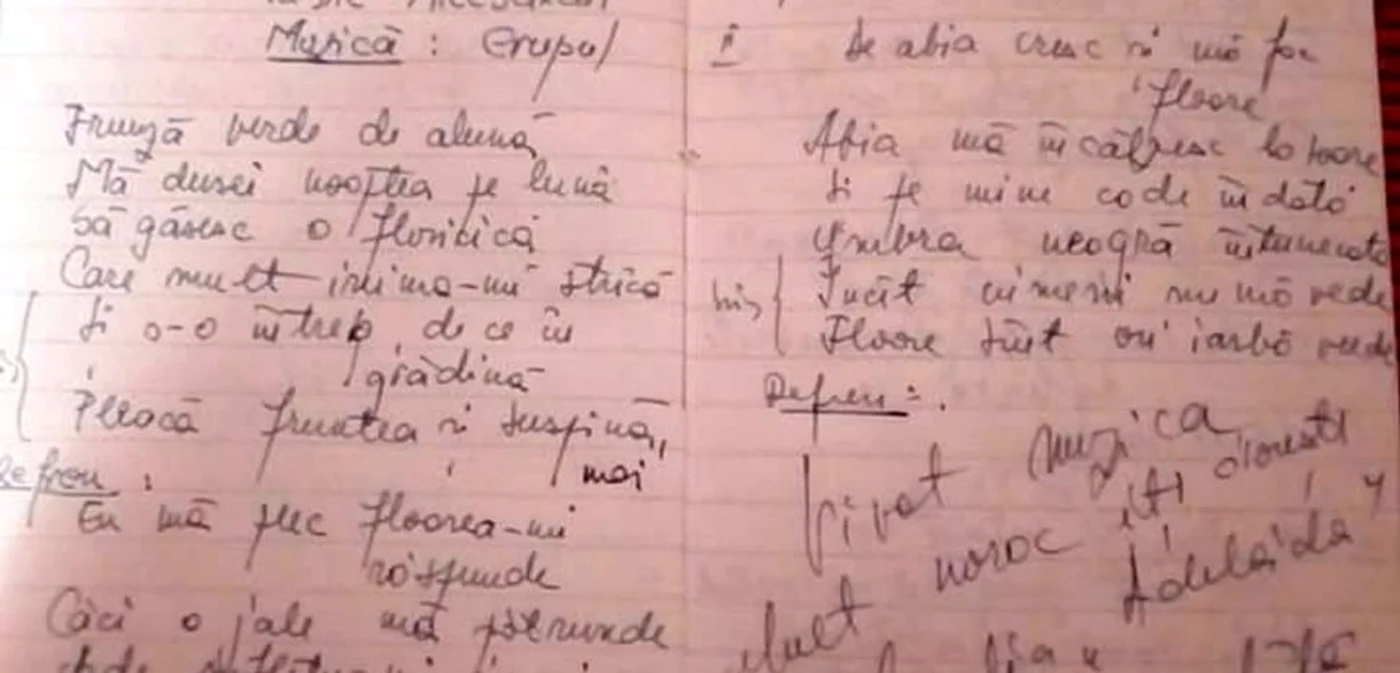 Muzică : Grupul
Frunză verde de alună
Mă dusei noaptea pe lună
Să găsesc o floricică
Care mult inima-mi strică
Și o-o întreb de ce în
grădină
Pleacă fruntea și suspină,,
mai
Refren :
Eu mă plec floarea-mi
răspunde
Căci o jale mă pătrunde
I De abia cresc și mă fac
floare
Abia mă încălzesc la soare
Și pe mine cade îndată
Umbra neagră întunecată
bis Încît nimeni nu mă vede
Floare sînt ori iarbă verde
Refren :.
Vivat muzica
Mult noroc iți dorești
Adelaida